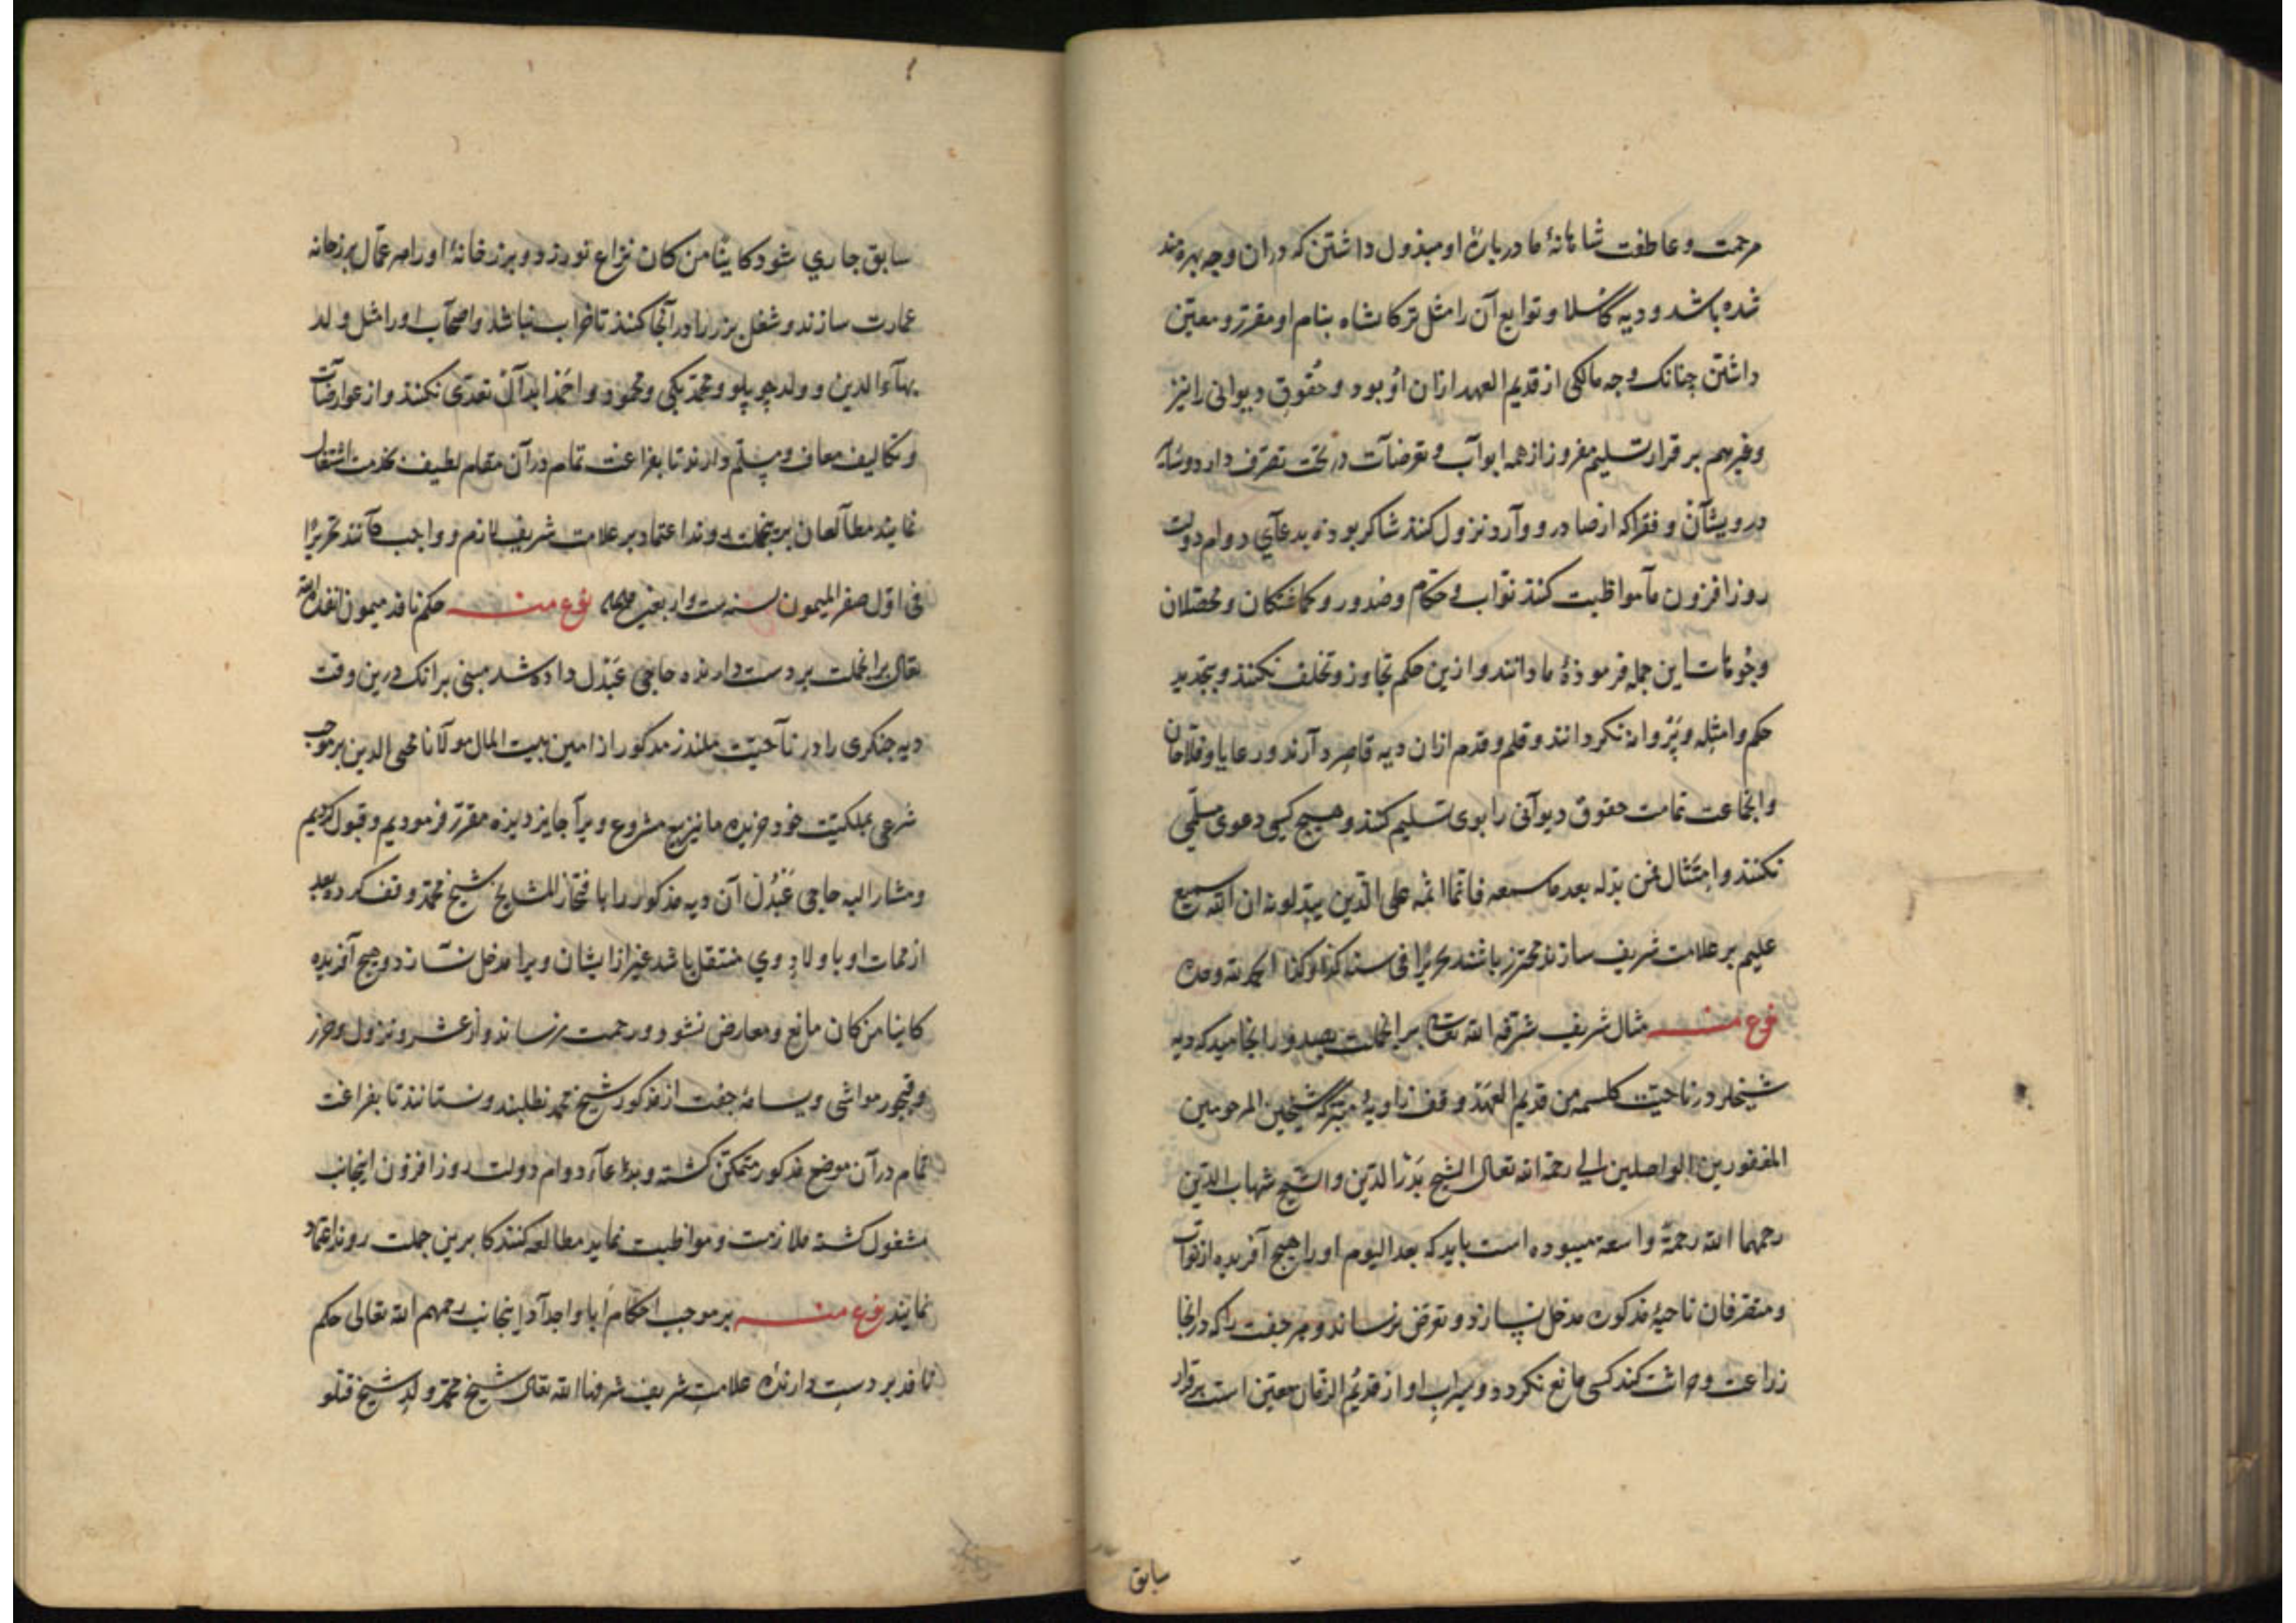 مرحمت و عاطفت شاهانهٔ ما دربارهٔ او مبذول داشتن که دران وجه بهره‌مند
شده باشد و دیه کاسلا و توابع آن را مثل ترکاشاه بنام او مقرر و معین
داشتن چنانک وجه مالکی از قدیم العهد ازان او بود و حقوق دیوانی را نیز
بر قرار تسلیم مفروز از همه ابواب و تعرضات در تحت تصرف دارد و
درویشان و فقرا که از صادر و وارد نزول کنند شاکر بوده بدعای دوام دولت
روز افزون ما مواظبت کنند نواب و حکام و صدور و کماشتکان و محصلان
این جمله فرمودهٔ ما دانند و ازین حکم تجاوز و تخلف نکنند و بتجدید
حکم و امثله و پروانه نکردانند و قلم و قدم ازان دیه قاصر دارند و رعایا و فلاحان
و انجماعت تمامت حقوق دیوانی را بوی تسلیم کنند و هیچ کسی دعوی
نکنند و امتثال فمن بدله بعد ما سمعه فانما اثمه علی الذین یبدلونه ان الله سمیع
علیم بر علامت شریف سازند محترز باشند تحریرا فی سنه کذا و کذا الحمد لله وحده
نوع منه مثال شریف شرفه الله تعالی برانجملت بصدور انجامید که دیه
شیخلر در ناحیت من قدیم العهد وقف زاویهٔ متبرکه شیخین المرحومین
المغفورین الواصلین الی رحمة الله تعالی الشیخ بدر الدین و الشیخ شهاب الدین
رحمهما الله رحمة واسعة میبوده است باید که بعد الیوم او را هیچ آفریده از نواب
و متصرفان ناحیهٔ مذکوره مدخل نسازند و تعرض نرسانند و هر جفت را که درانجا
زراعت و حراثت کند کسی مانع نکردد و میراب او از قدیم الزمان معین است بر قرار
سابق
سابق جاری شود کاینا من کان نزاع نورزد و بزرخانهٔ او را هر عمال بزرخانه
عمارت سازند و شغل بزر را در آنجا کنند تا خراب نباشد و اصحاب او را مثل ولد
بهاء الدین و ولد چوپلو و محمد بکی و محمود و احمد ابدال تعدی نکنند و از عوارضات
و تکالیف معاف و مسلم دارند تا بفراغت تمام در آن مقام لطیف بخدمت اشتغال
نمایند مطالعان برینجملت روند اعتماد بر علامت شریف لازم و واجب دانند تحریرا
فی اول صفر المیمون سنه ست و اربعین نوع منه حکم نافذ میمون انفذه الله
تعالی برانجملت بر دست دارنده حاجی عبدل داده شد مبنی برانک درین وقت
دیه جنکری را در ناحیت ملندز مذکور از امین بیت المال مولانا محیی الدین بر موجب
شرعی بملکیت خود خریده ما نیز بیع مشروع ویرا جایز دیده مقرر فرمودیم و قبول کردیم
و مشار الیه حاجی عبدل آن دیه مذکور را با فتخار المشایخ شیخ محمد وقف کرد و بعد
از ممات او با ولاد وی منتقل باشد غیر از ایشان ویرا مدخل نسازد و هیچ آفریده
کاینا من کان مانع و معارض نشود و زحمت نرساند و از عشر و نزول و حزر
و قبجور مواشی و رسامهٔ جفت از مذکور شیخ محمد نطلبند و نستانند تا بفراغت
تمام در آن موضع مذکور متمکن کشته و بدعاء دوام دولت روز افزون اینجانب
مشغول کشته ملازمت و مواظبت نماید مطالعه کنندکا برین جملت روند اعتماد
نمایند نوع منه بر موجب احکام آبا و اجداد اینجانب رحمهم الله تعالی حکم
نافذ بر دست دارندهٔ علامت شریف شرفها الله تعالی شیخ محمد ولد شیخ قتلو